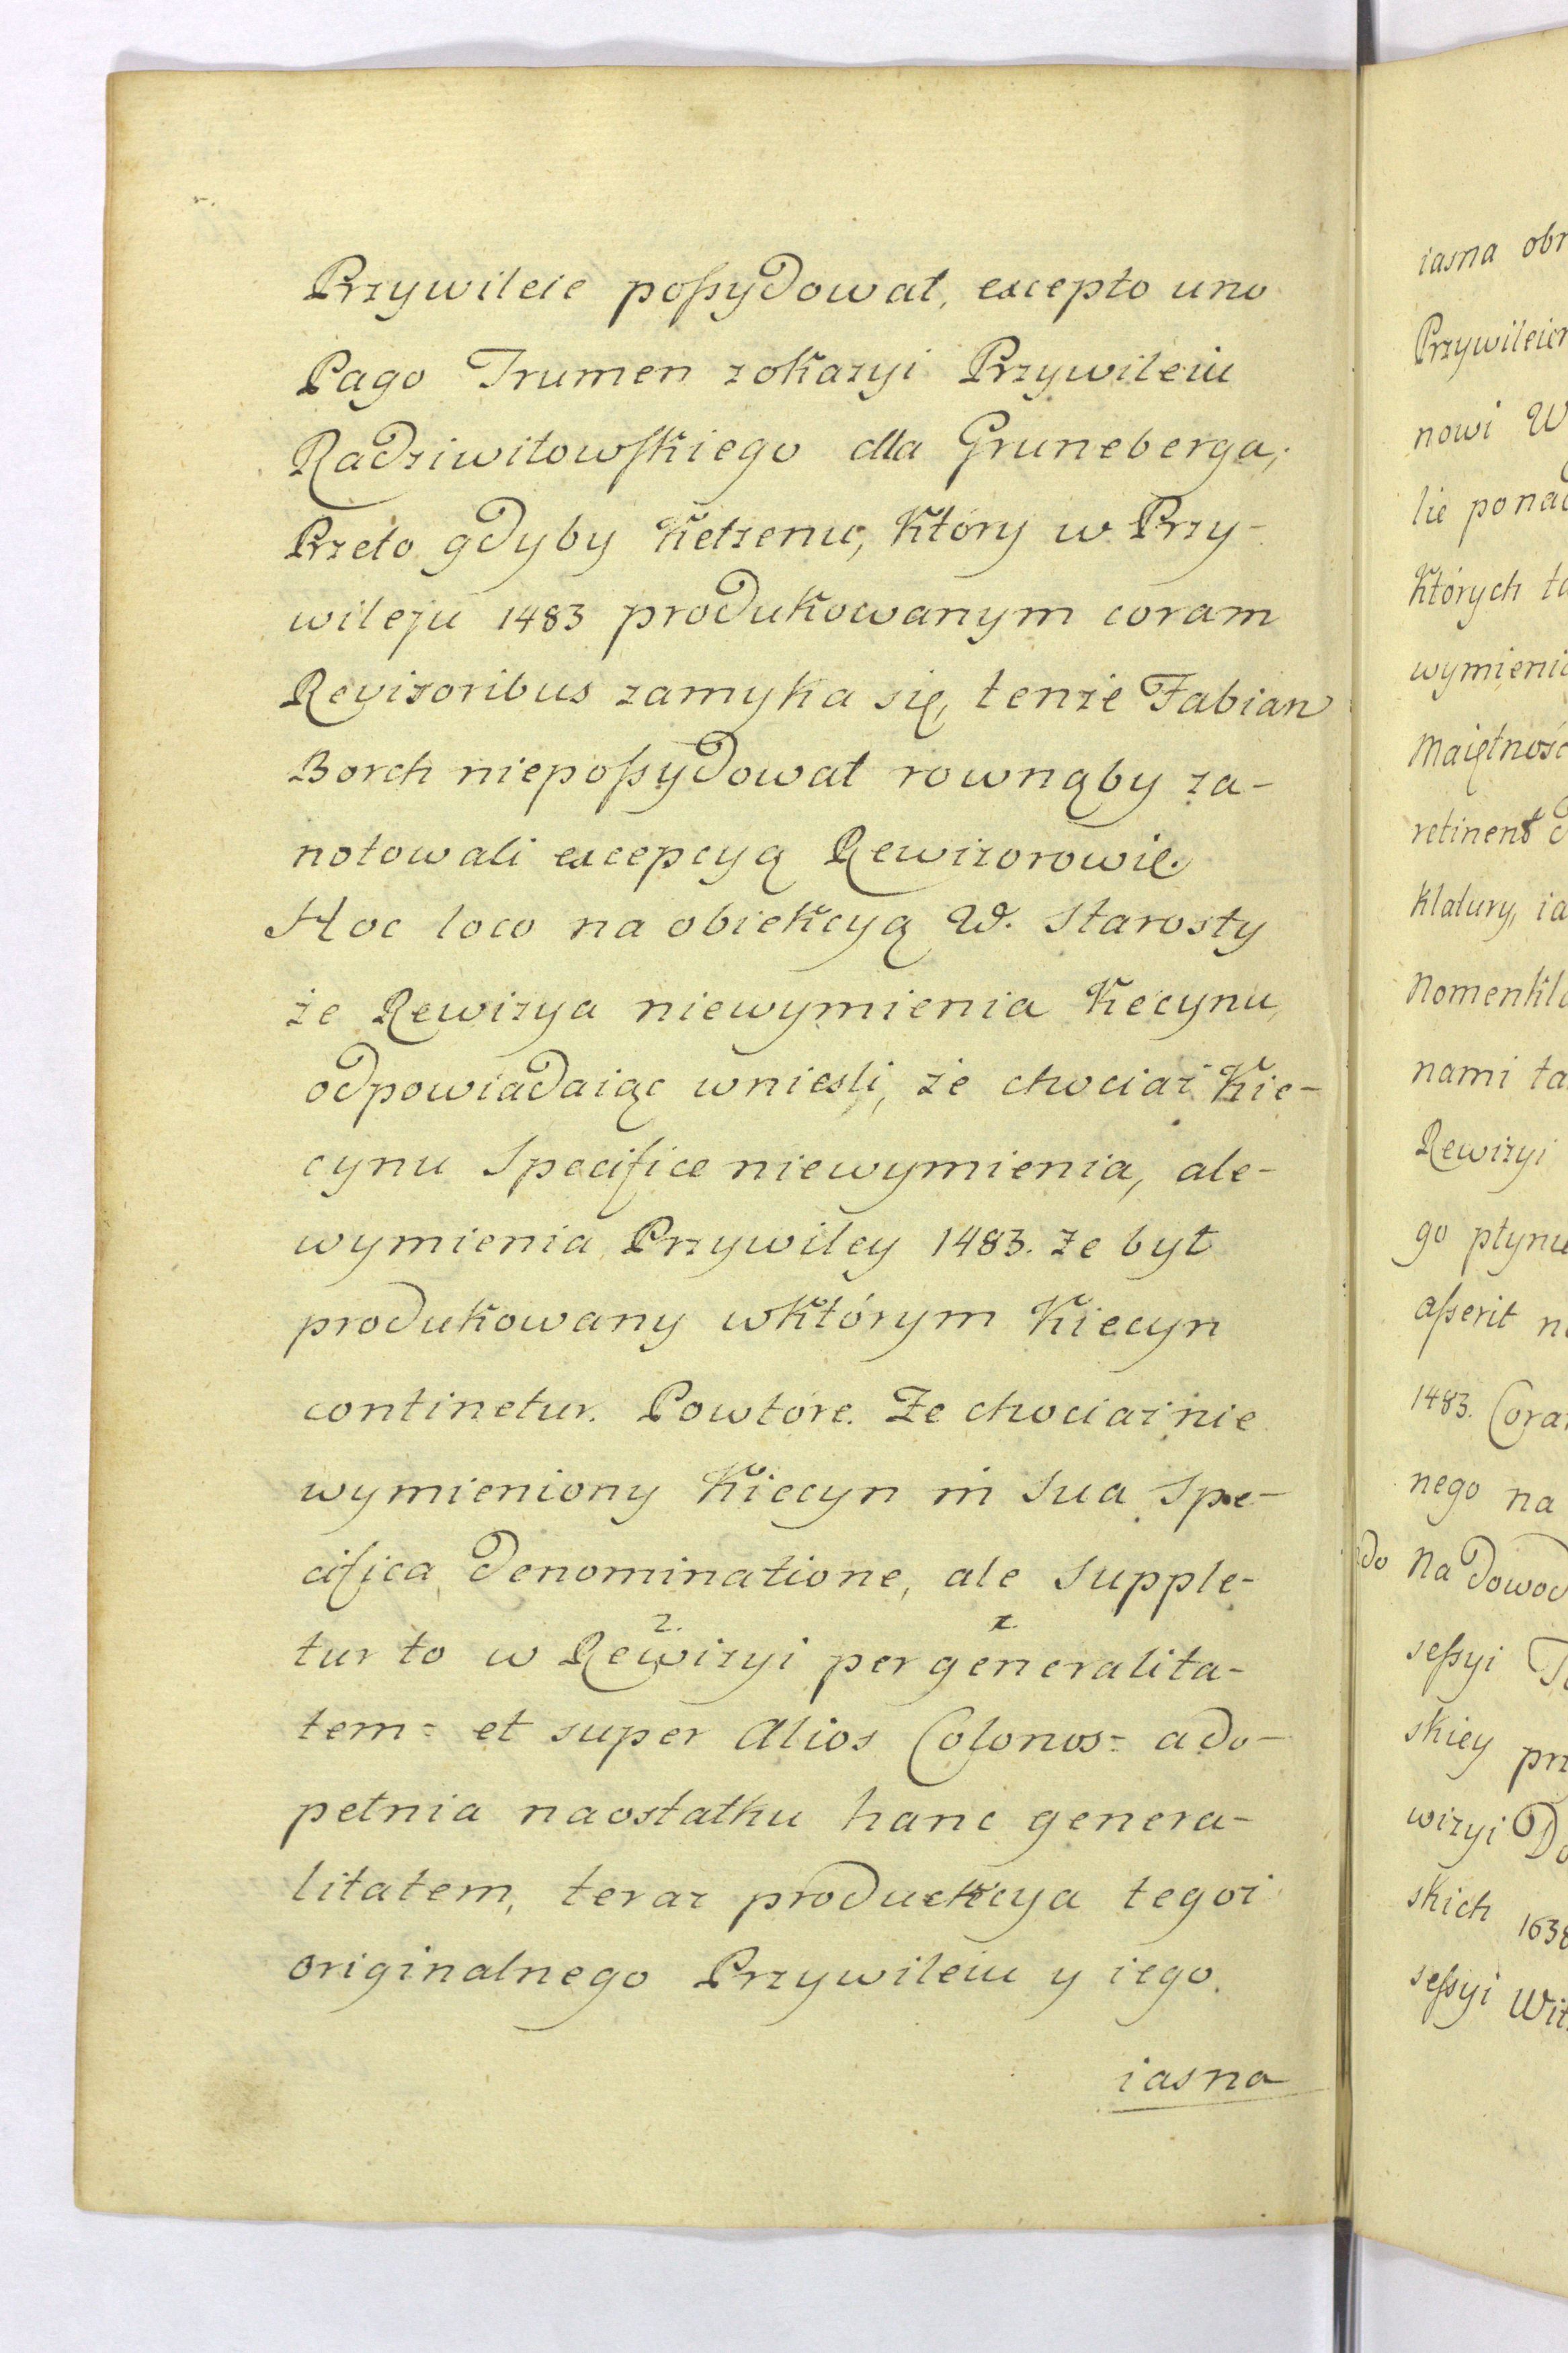 Przywileie possydował, excepto uno
Pago Trumen zokazyi Przywileiu
Radziwiłowskiego dla Gruneberga;
Przeto gdyby Ketzenu, Który w Przy-
wileju 1483 produkowanym coram
Revizoribus zamyka się, tenże Fabian
Borch niepossydował rownąby za-
notowali excepcyą Rewizorowie.
Hoc loco na obiekcyą W. Starosty
że Rewizya niewymienia Kecynu,
odpowiadaiąc wniesli, że chociaż Kie-
cynu Specifice niewymienia, ale-
wymienia Przywiley 1483. że był
produkowany wktórym Kiecyn
continetur. Powtóre. Że chociaż nie
wymieniony Kiecyn in Sua Spe-
cifica Denominatione, ale Supple-
2. 1.
tur to w Rewizyi per generalita-
tem = et super Alios Colonos = a do-
pełnia naostatku hanc genera-
litatem, teraz produkcya tegoż
originalnego Przywileiu y iego
iasna
iasna
Przywileie
nowi W
lie
Których
wymieni
Maiętnośc
retinent
klatury, ia
Nomenkl
nami ta
Rewizyi
go płynu
asserit
1483. Cora
nego na
do Na Dowod
sessyi
skiey
wizyi
skich 1638
sessyi